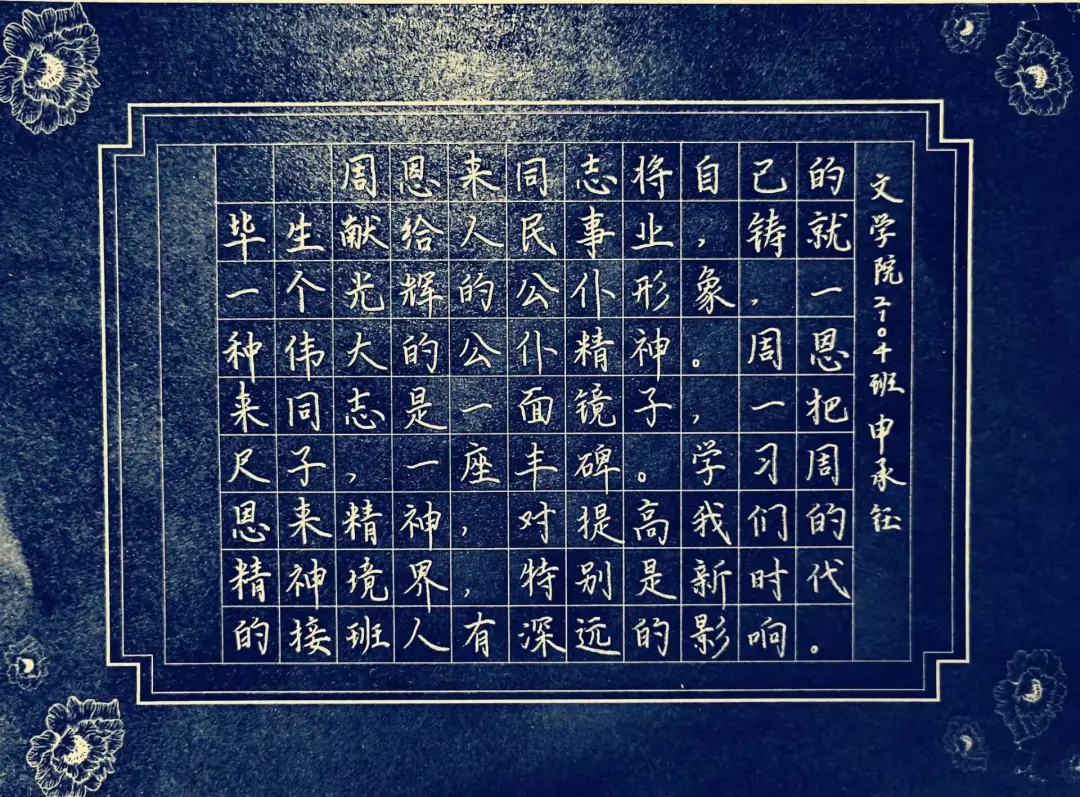 周恩来同志将自己的
毕生献给人民事业，铸就
一个光辉的公仆形象，一
种伟大的公仆精神。周恩
来同志是一面镜子，一把
尺子，一座丰碑。学习周
恩来精神，对提高我们的
精神境界，特别是新时代
的接班人有深远的影响。
文学院2104班申承钰